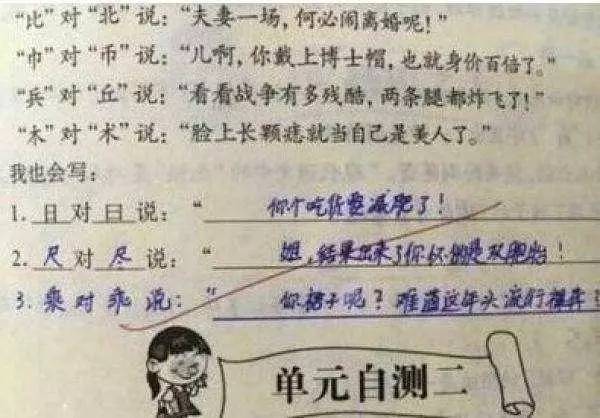 “比”对“北”说：“夫妻一场，何必闹离婚呢！”
“巾”对“币”说：“儿啊，你戴上博士帽，也就身价百倍了。”
“兵”对“丘”说：“看看战争有多残酷，两条腿都炸飞了！”
“木”对“术”说：“脸上长颗痣就当自己是美人了。”
我也会写：
1. 日 对 曰 说：“ 你个吃货要减肥了！
2. 尺 对 尽 说：“ 姐，结果出来了你怀的是双胞胎！
3. 乘 对 乖 说：“ 你裙子呢？难道这年头流行裸奔？
单元自测二